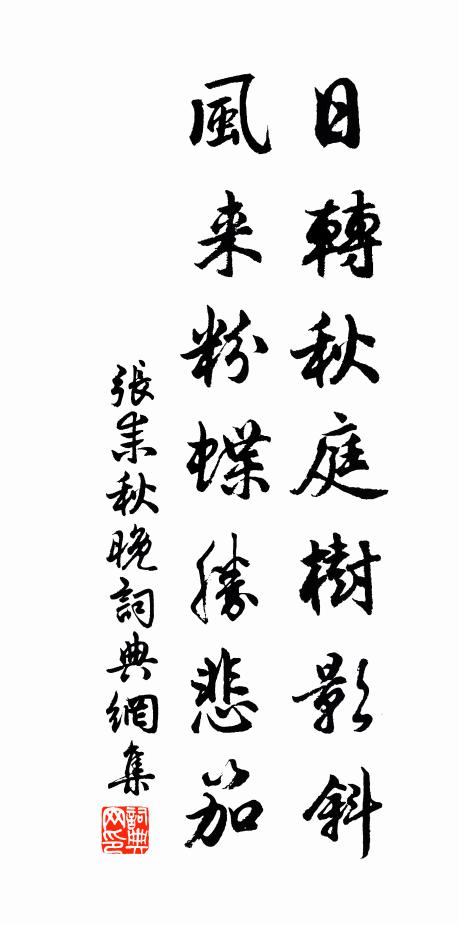 日轉秋庭樹影斜
風来粉蝶勝悲笳
張耒秋晚詞典網集
詞典網印